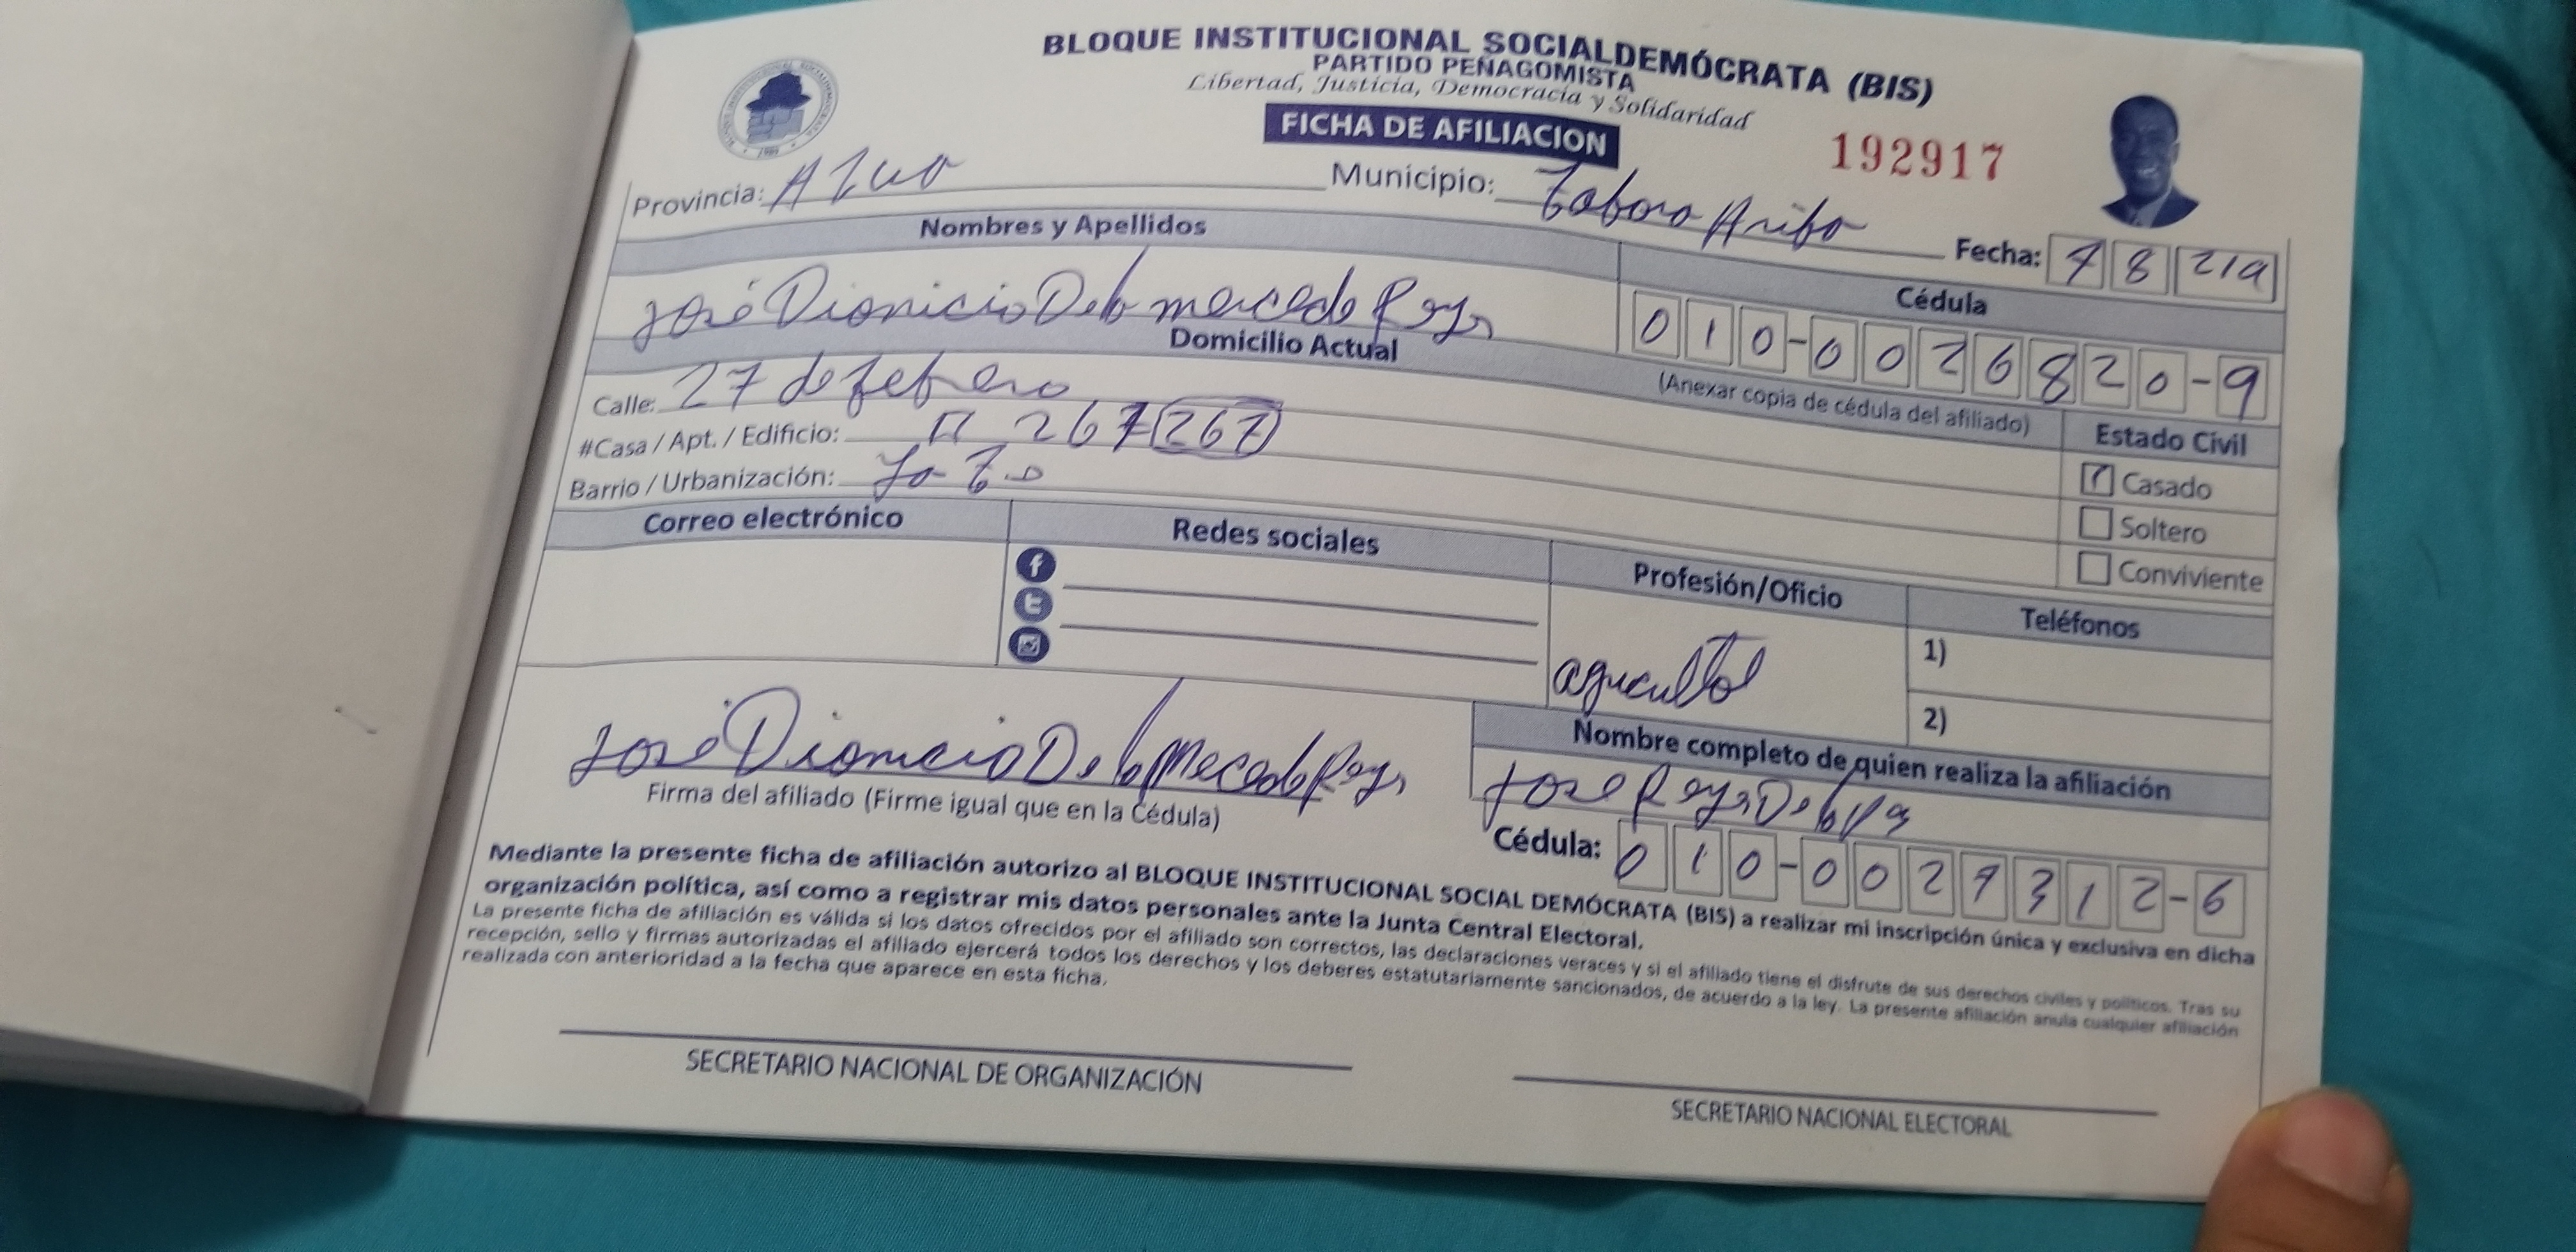 BLOQUE INSTITUCIONAL SOCIALDEMÓCRATA (BIS)
PARTIDO PEÑAGOMISTA
Libertad, Justicia, Democracia y Solidaridad
FICHA DE AFILIACION
192917
Provincia: Azua Municipio: Tabara Ariba
Fecha: 7 8 219
Nombres y Apellidos
José Dionicio De la mercede Reyes
Cédula
010-0026820-9
(Anexar copia de cédula del afiliado)
Domicilio Actual
Calle: 27 de febrero
#Casa / Apt. / Edificio: 267 267
Barrio / Urbanización:
Estado Civil
Casado
Soltero
Conviviente
Correo electrónico
Redes sociales
Profesión/Oficio
agricultol
Teléfonos
1)
2)
José Dionicio De la Mecede Reyes
Firma del afiliado (Firme igual que en la Cédula)
Nombre completo de quien realiza la afiliación
Jose Reyes De la
Cédula: 010-0029312-6
Mediante la presente ficha de afiliación autorizo al BLOQUE INSTITUCIONAL SOCIAL DEMÓCRATA (BIS) a realizar mi inscripción única y exclusiva en dicha
organización política, así como a registrar mis datos personales ante la Junta Central Electoral.
La presente ficha de afiliación es válida si los datos ofrecidos por el afiliado son correctos, las declaraciones veraces y si el afiliado tiene el disfrute de sus derechos civiles y políticos. Tras su
recepción, sello y firmas autorizadas el afiliado ejercerá todos los derechos y los deberes estatutariamente sancionados, de acuerdo a la ley. La presente afiliación anula cualquier afiliación
realizada con anterioridad a la fecha que aparece en esta ficha.
SECRETARIO NACIONAL DE ORGANIZACIÓN
SECRETARIO NACIONAL ELECTORAL